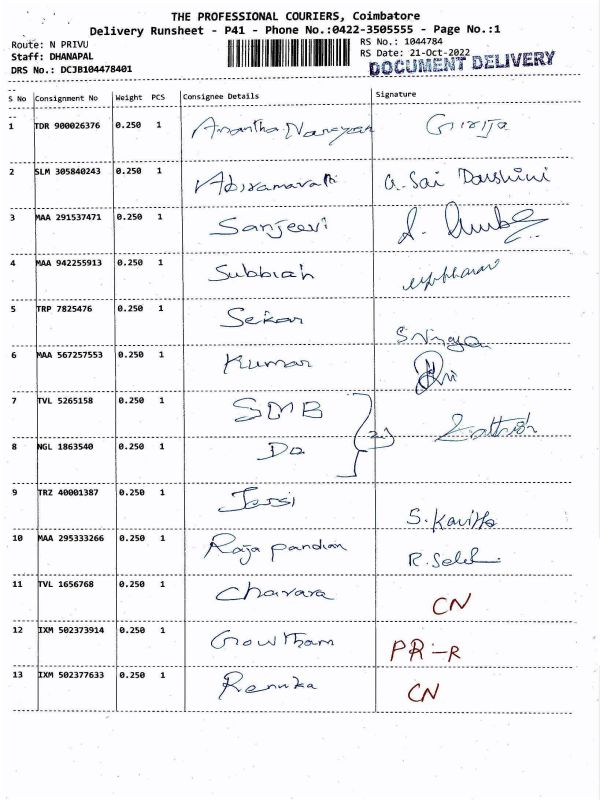 THE PROFESSIONAL COURIERS, Coimbatore
Delivery Runsheet - P41 - Phone No.:0422-3505555 - Page No.:1
Route: N PRIVU
RS No.: 1044784
Staff: DHANAPAL
RS Date: 21-Oct-2022
DRS No.: DCJB104478401
DOCUMENT DELIVERY
S No Consignment No Weight PCS Consignee Details Signature
1 TDR 900026376 0.250 1 Anantha Narayan Girija
2 SLM 305840243 0.250 1 G. Sai Darshini
3 MAA 291537471 0.250 1 Sanjeevi
4 MAA 942255913 0.250 1 Subbiah
5 TRP 7825476 0.250 1 Sekar
6 MAA 567257553 0.250 1 Kumar
7 TVL 5265158 0.250 1 SMB
8 NGL 1863540 0.250 1 Do
9 TRZ 40001387 0.250 1 S. Kavitha
10 MAA 295333266 0.250 1 Raja pandian
11 TVL 1656768 0.250 1 Chavara CN
12 IXM 502373914 0.250 1 Gowtham PR-R
13 IXM 502377633 0.250 1 Rennka CN